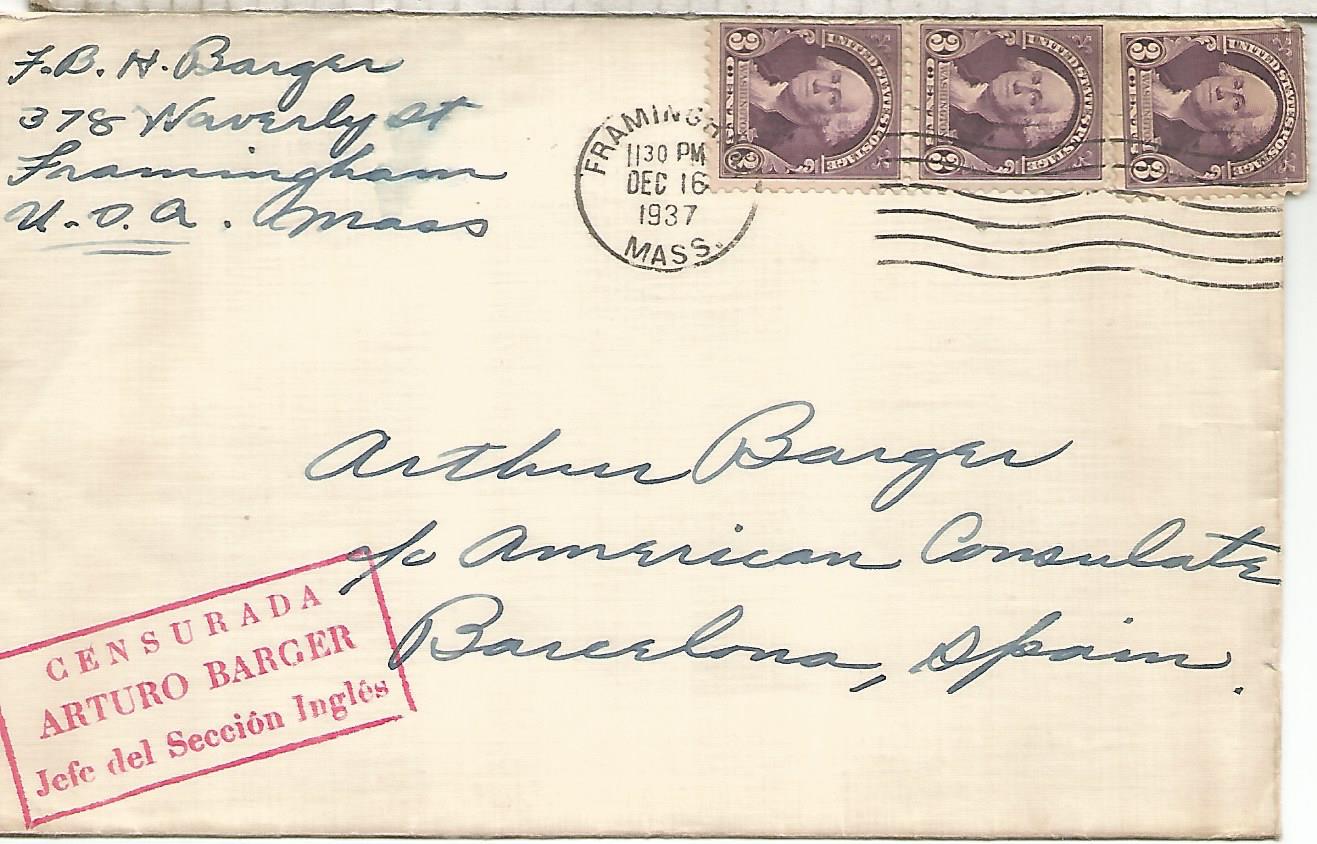 F. B. H. Barger
378 Waverly St
Framingham
U.S.A. Mass
FRAMINGH
1130 PM
DEC 16
1937
MASS.
3 CENTS 3
WASHINGTON
UNITED STATES POSTAGE
3 CENTS 3
WASHINGTON
UNITED STATES POSTAGE
3 CENTS 3
WASHINGTON
UNITED STATES POSTAGE
Arthur Barger
c/o American Consulate
Barcelona, Spain.
CENSURADA
ARTURO BARGER
Jefe del Sección Inglés